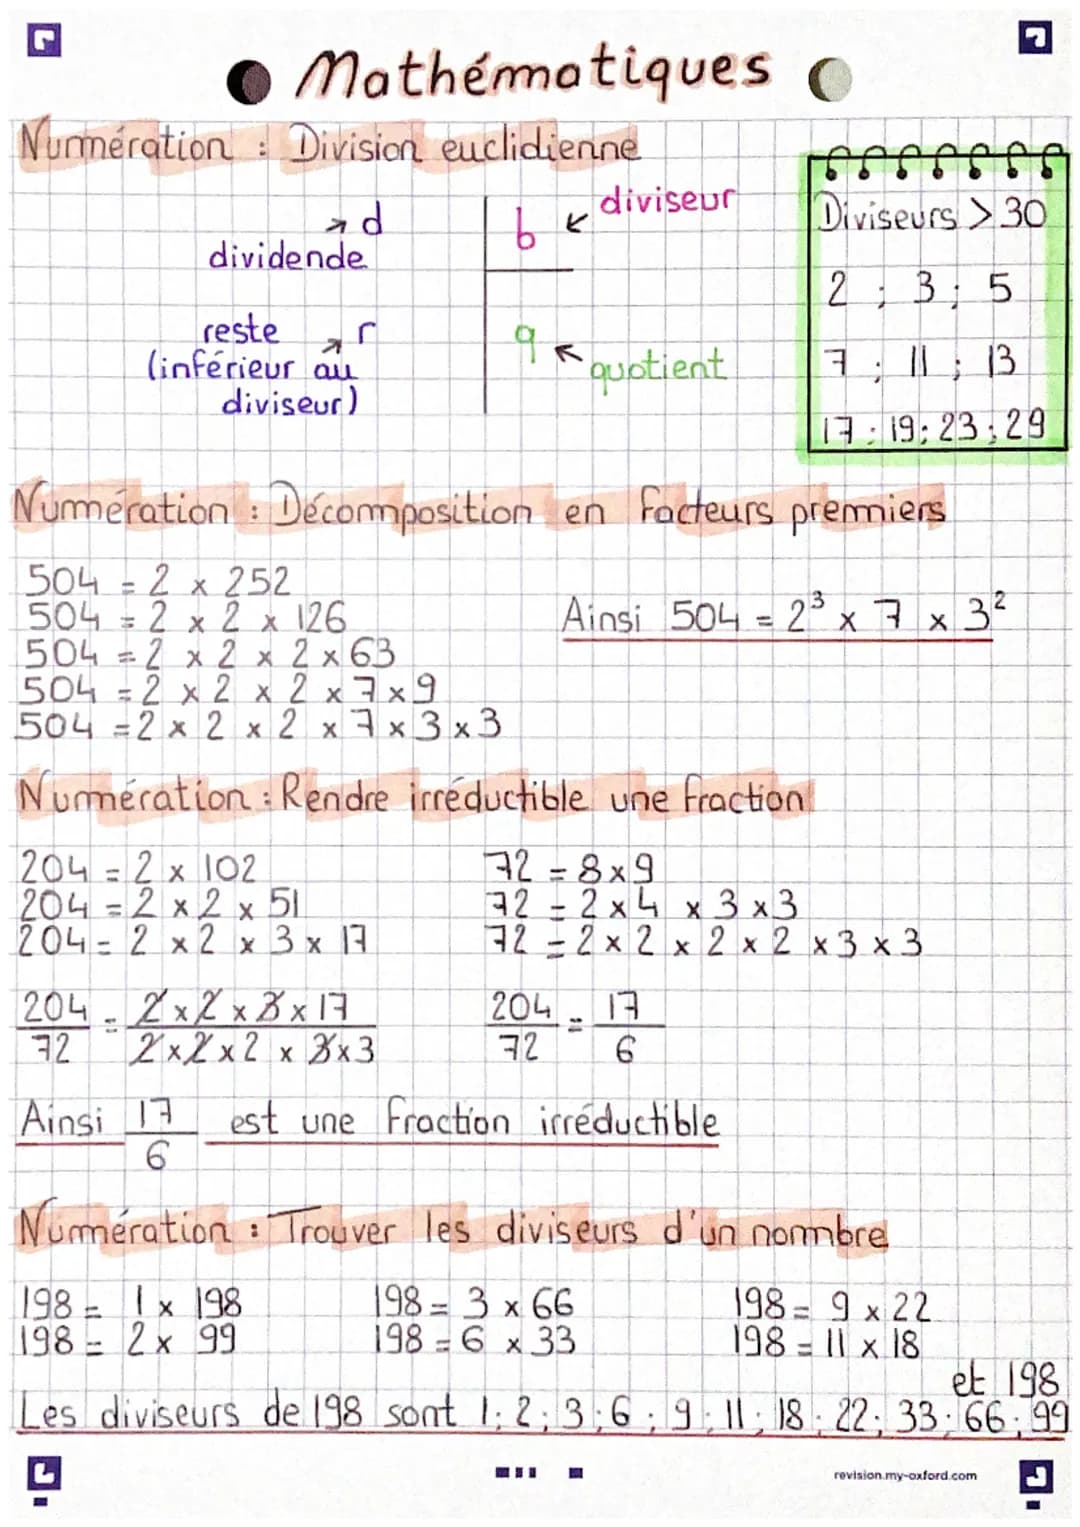 Mathématiques
Numération : Division euclidienne
d
dividende
b
diviseur
reste
r
(inférieur au
diviseur)
q
quotient
Diviseurs > 30
2 ; 3 ; 5
7 ; 11 ; 13
17 ; 19 ; 23 ; 29
Numération : Décomposition en facteurs premiers
504 = 2 x 252
504 = 2 x 2 x 126
504 = 2 x 2 x 2 x 63
504 = 2 x 2 x 2 x 7 x 9
504 = 2 x 2 x 2 x 7 x 3 x 3
Ainsi 504 = 2³ x 7 x 3²
Numération : Rendre irréductible une fraction
204 = 2 x 102
204 = 2 x 2 x 51
204 = 2 x 2 x 3 x 17
72 = 8 x 9
72 = 2 x 4 x 3 x 3
72 = 2 x 2 x 2 x 2 x 3 x 3
204/72 = 2 x 2 x 3 x 17 / 2 x 2 x 2 x 3 x 3
204/72 = 17/6
Ainsi 17/6 est une fraction irréductible
Numération : Trouver les diviseurs d'un nombre
198 = 1 x 198
198 = 2 x 99
198 = 3 x 66
198 = 6 x 33
198 = 9 x 22
198 = 11 x 18
et 198
Les diviseurs de 198 sont 1 ; 2 ; 3 ; 6 ; 9 ; 11 ; 18 ; 22 ; 33 ; 66 ; 99
revision.my-oxford.com